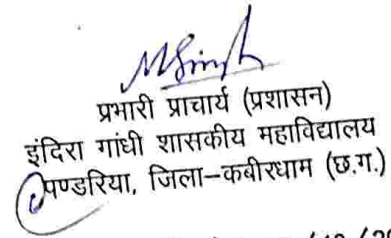 MSingh
प्रभारी प्राचार्य (प्रशासन)
इंदिरा गांधी शासकीय महाविद्यालय
पण्डरिया, जिला–कबीरधाम (छ.ग.)